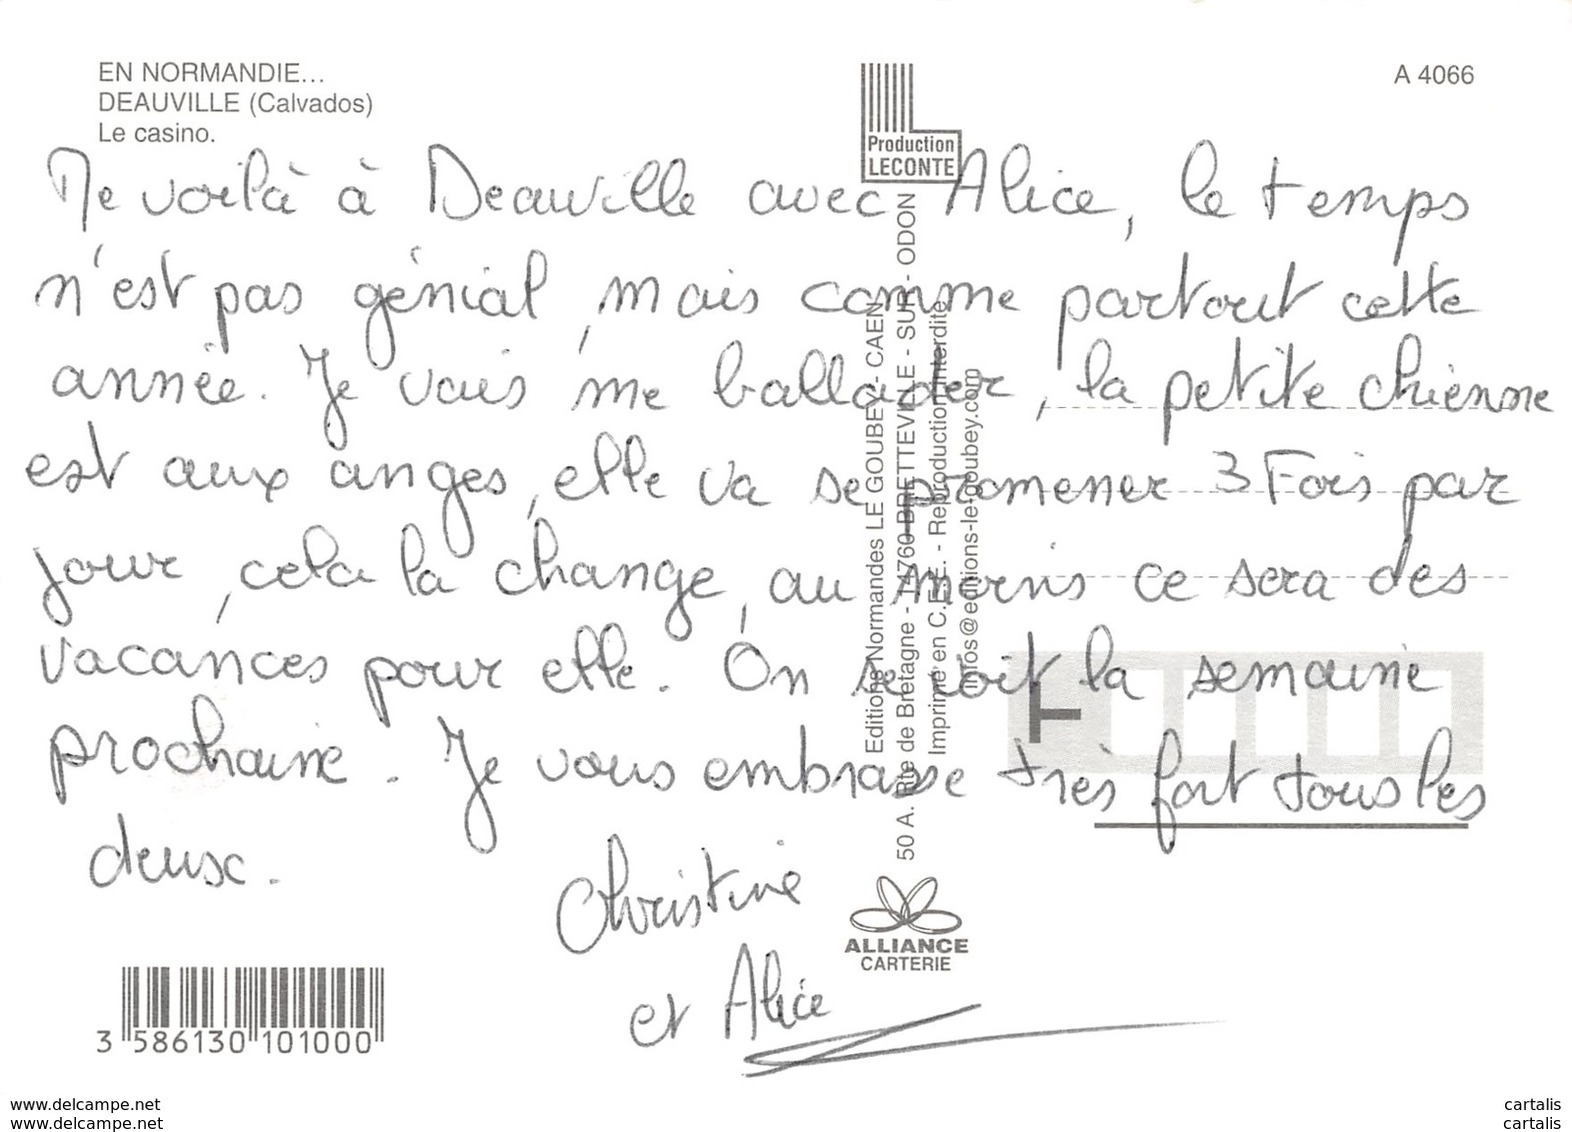 EN NORMANDIE...
DEAUVILLE (Calvados)
Le casino.
A 4066
Production
LECONTE
Me voilà à Deauville avec Alice, le temps
n'est pas génial, mais comme partout cette
année. Je vais me ballader, la petite chienne
est aux anges, elle va se promener 3 Fois par
jour, cela la change, au moins ce sera des
vacances pour elle. On se voit la semaine
prochaine. Je vous embrasse très fort tous les
deux.
Christine
et Alice
Editions Normandes LE GOUBEY - CAEN
50 A. Rte de Bretagne - 14760 BRETTEVILLE - SUR - ODON
Imprimé en C.E.E. - Reproduction interdite
infos@editions-le-goubey.com
T
ALLIANCE
CARTERIE
3 586130 101000
www.delcampe.net
www.delcampe.net
cartalis
cartalis